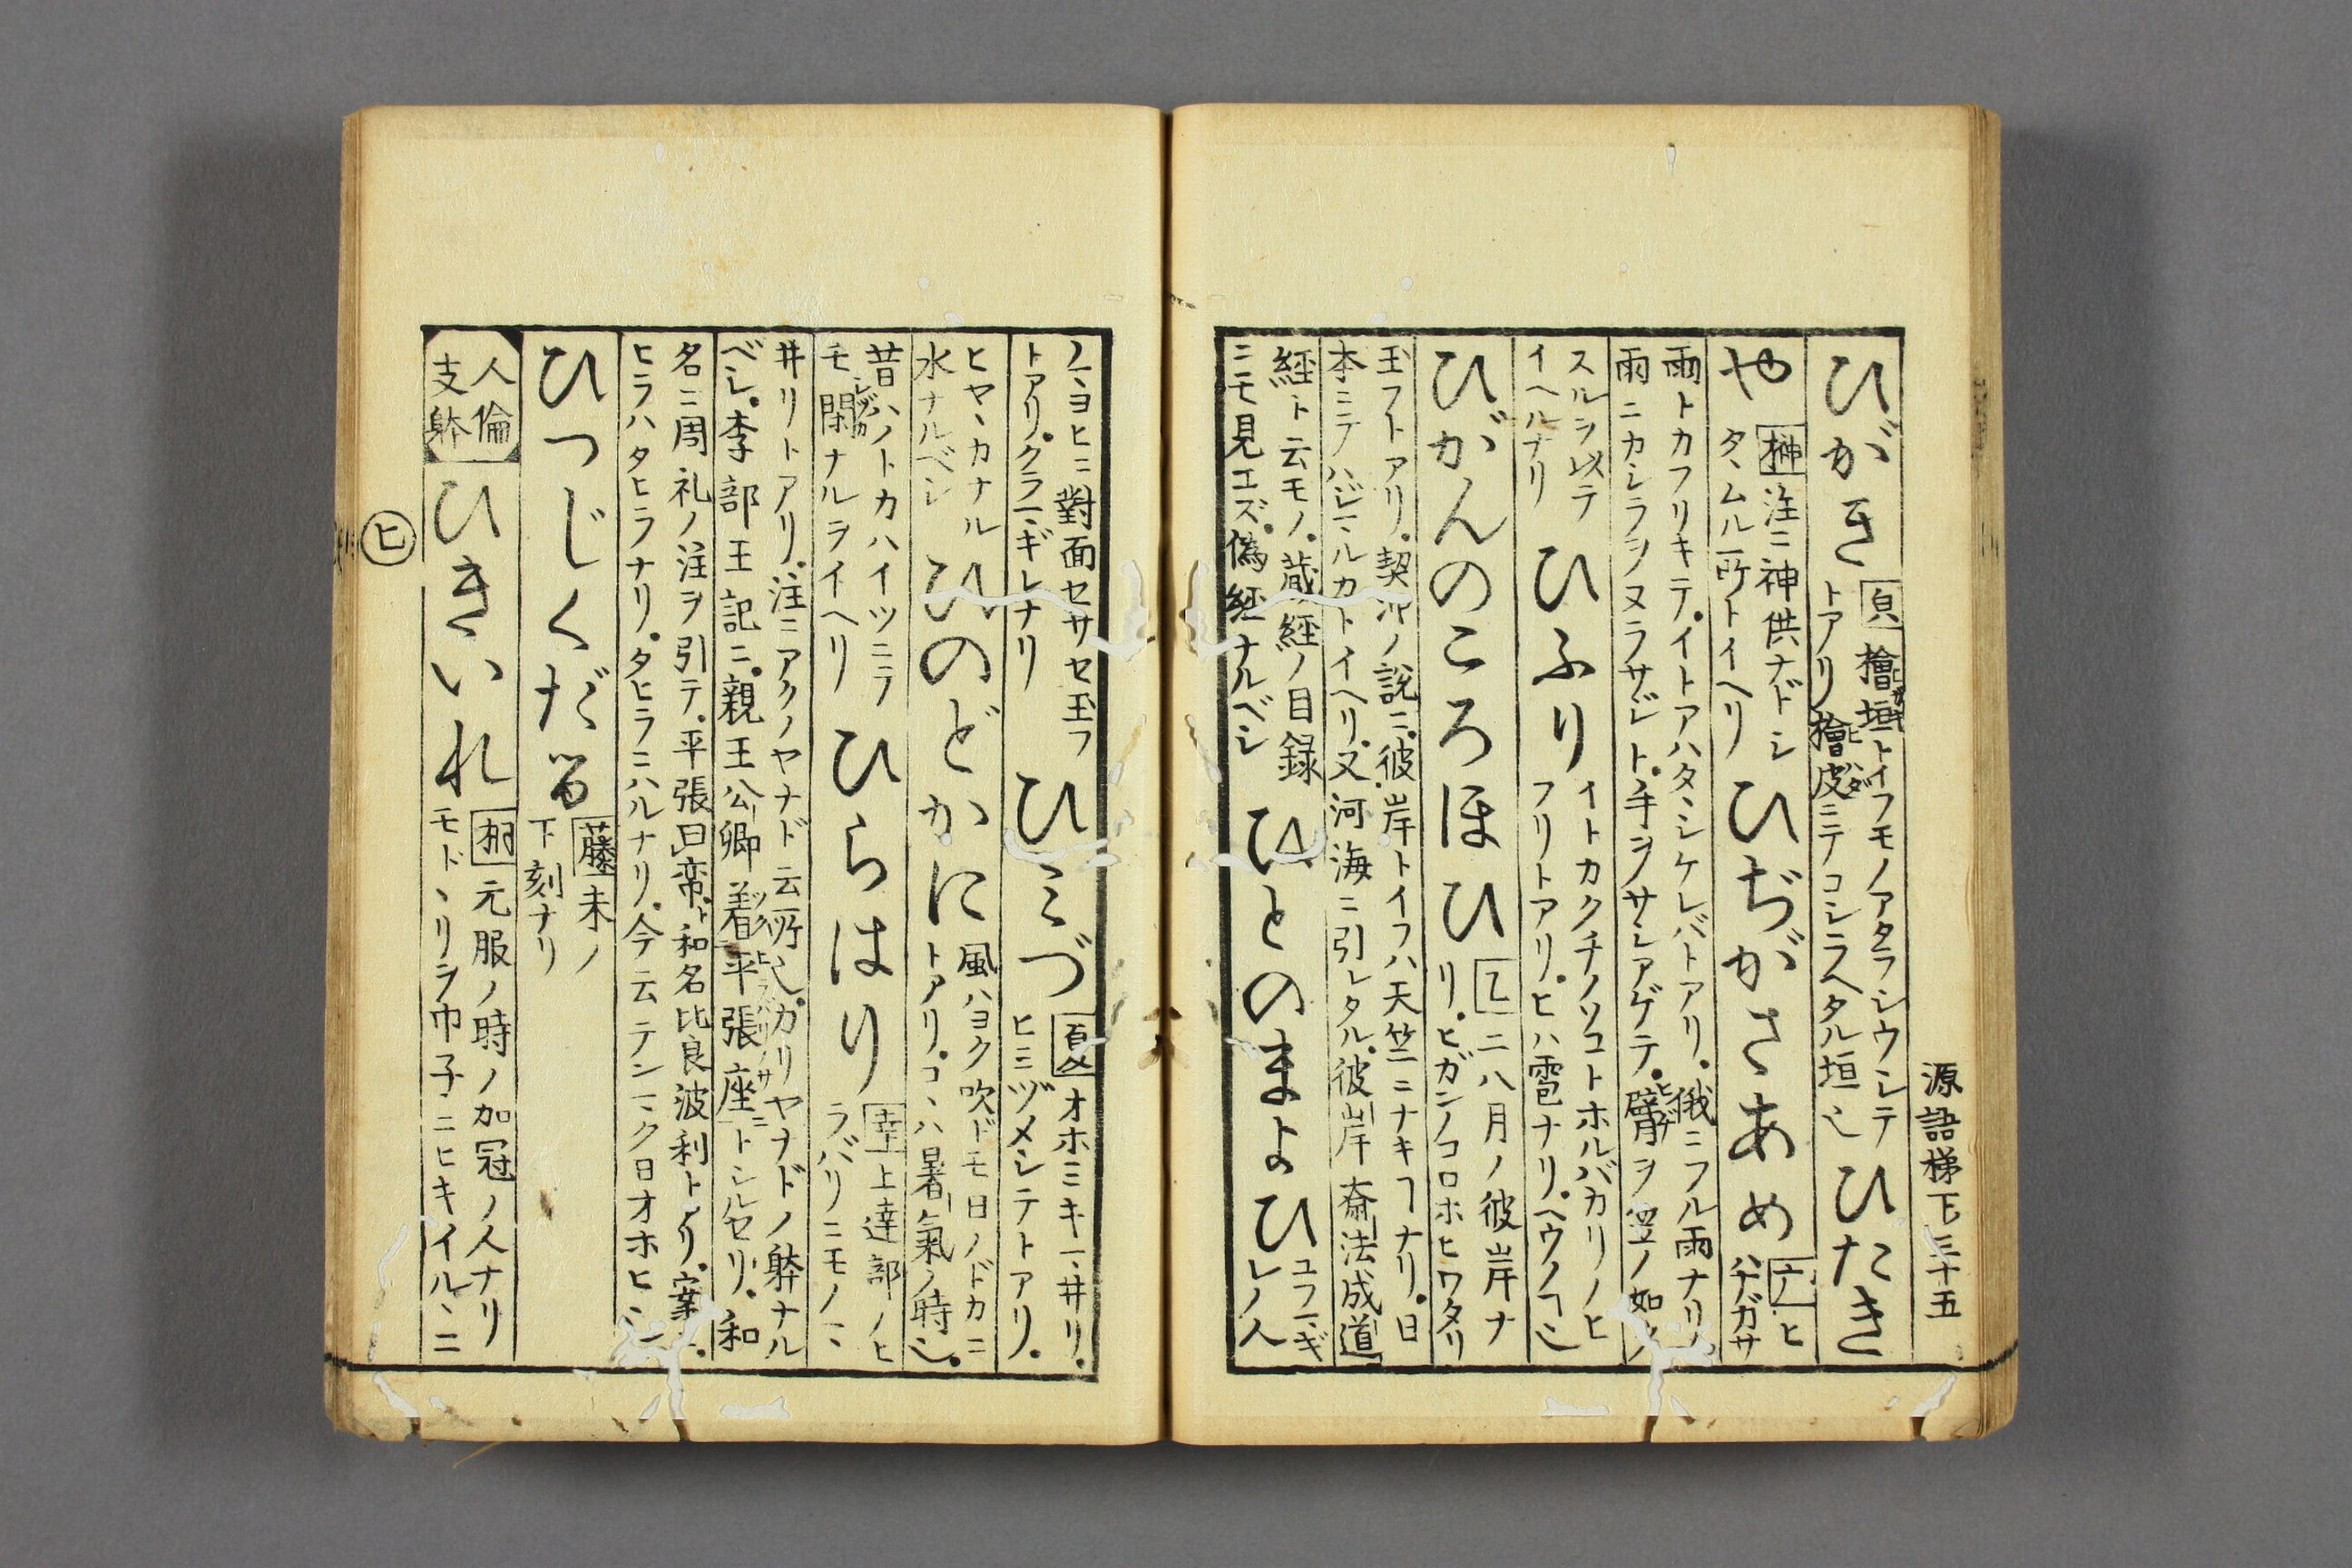 源語梯下 三十五
ひがき 㒵 檜垣トイフモノアタラシウシテ
トアリ檜皮ニテコシラヘタル垣也 ひたき
や 榊 注ニ神供ナドシ
タヽムル所トイヘリ ひぢがさあめ ヒ
ヂガサ
雨トカフリキテ。イトアハタヽシケレバトアリ。俄ニフル雨ナリ。
雨ニカシラヲヌラサジト。手ヲサシアゲテ。臂ヲ笠ノ如ク
スルヲ以テ
イヘルナリ ひふり イトカクチノソコトホルバカリノヒ
フリトアリ。ヒハ雹ナリ。ヘウノヿ也
ひがんのころほひ 乙 二八月ノ彼岸ナ
リ。ヒガンノコロホヒワタリ
玉フトアリ。契沖ノ説ニ。彼岸トイフハ天竺ニナキヿナリ。日
本ニテハジマルカトイヘリ。又河海ニ引レタル。彼岸斎法成道
経ト云モノ。蔵経ノ目録
ニモ見エズ。偽経ナルベシ ひとのまよひ ユフマギ
レノ人
ノマヨヒニ對面セサセ玉フ
トアリ。クラマギレナリ ひみづ 夏 オホミキマヰリ。
ヒミヅメシテトアリ。
ヒヤヽカナル
水ナルベシ ひのどかに 風ハヨク吹ドモ日ノドカニ
トアリ。コヽハ暑氣ノ時也。
昔ハノトカハイツニテ
モ閑ナルヲイヘリ ひらはり 幸 上達部ノヒ
ラバリニモノマヽ
井リトアリ。注ニアクノヤナド云所也。カリヤナドノ躰ナル
ベシ。李部王記ニ。親王公卿着平張座トシルセリ。和
名ニ周礼ノ注ヲ引テ。平張曰帟。和名比良波利トアリ。案ニ。
ヒラハタヒラナリ。タヒラニハルナリ。今云テンマク日オホヒ也
ひつじくだる 藤 未ノ
下刻ナリ
人倫
支躰 ひきいれ 桐 元服ノ時ノ加冠ノ人ナリ
モトヽリヲ巾子ニヒキイルヽニ
ヒ